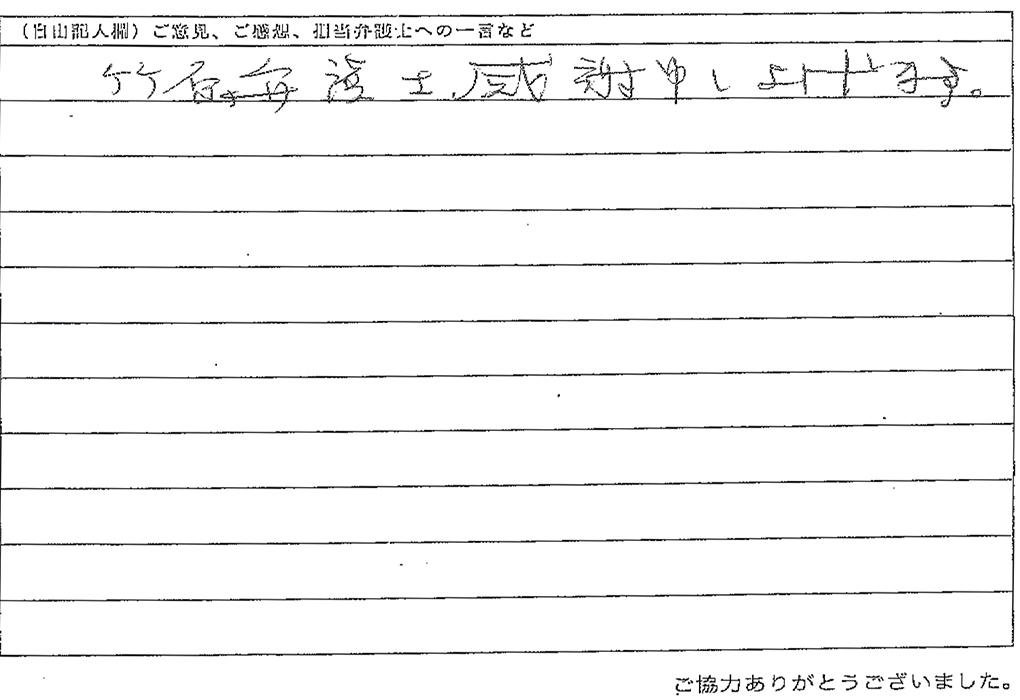 （自由記入欄）ご意見、ご感想、担当弁護士への一言など
竹原弁護士、感謝申し上げます。
ご協力ありがとうございました。